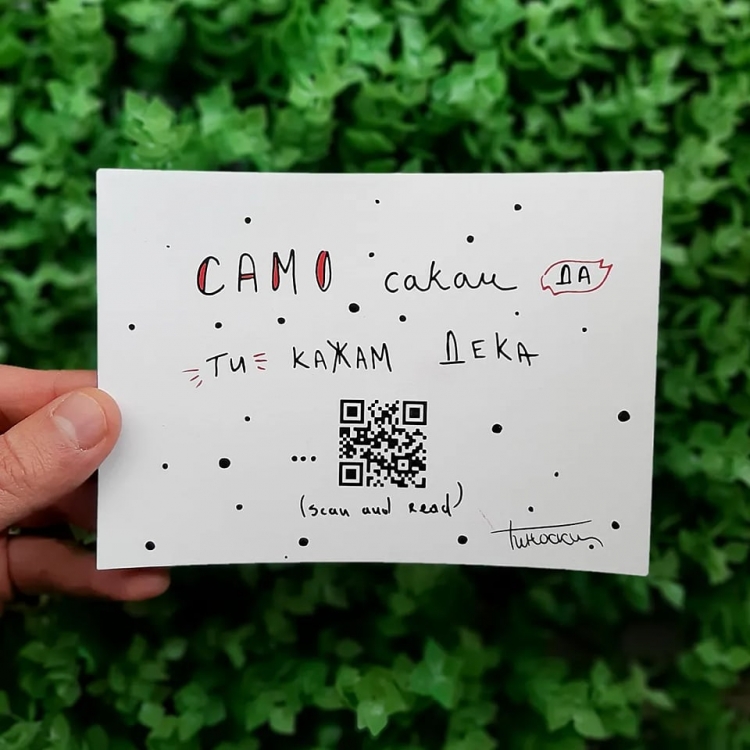 САМО сакам ДА
ТИ КАЖАМ ДЕКА
...
(scan and read)